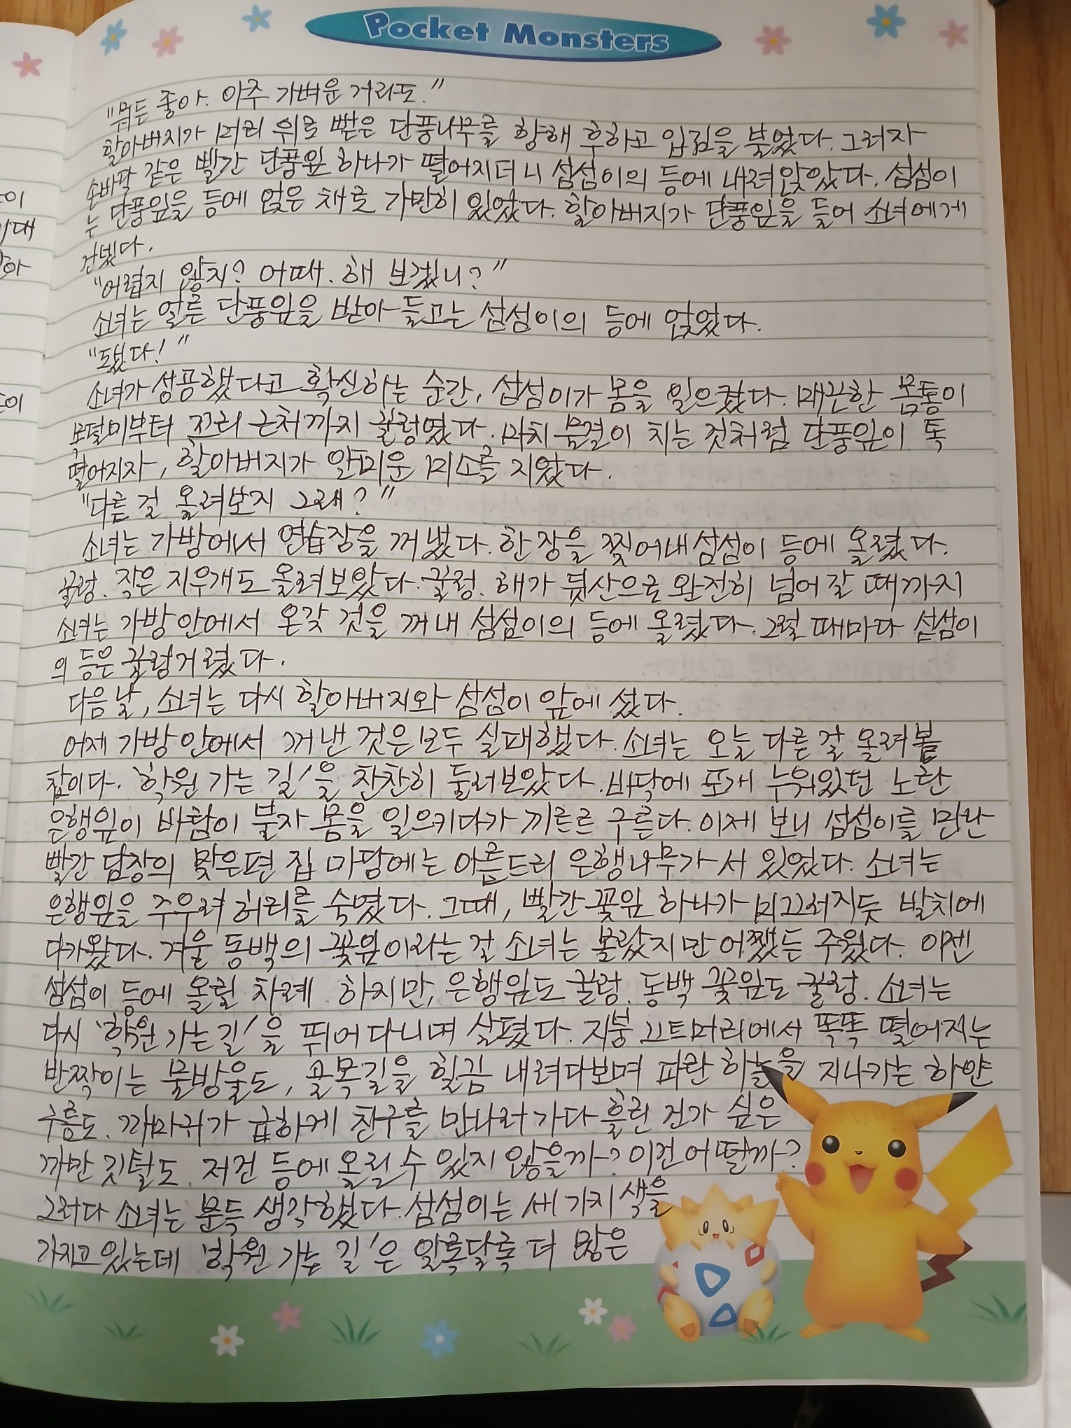 Pocket Monsters
"뭐든 좋아. 아주 가벼운 거라도."
할아버지가 머리 위로 뻗은 단풍나무를 향해 후하고 입김을 불었다. 그러자
손바닥 같은 빨간 단풍잎 하나가 떨어지더니 섬섬이의 등에 내려앉았다. 섬섬이
는 단풍잎을 등에 얹은 채로 가만히 있었다. 할아버지가 단풍잎을 들어 소녀에게
건넸다.
"어렵지 않지? 어때. 해 보겠니?"
소녀는 얼른 단풍잎을 받아 들고는 섬섬이의 등에 얹었다.
"됐다!"
소녀가 성공했다고 확신하는 순간, 섬섬이가 몸을 일으켰다. 매끈한 몸통이
목덜미부터 꼬리 근처까지 꿀렁였다. 마치 물결이 치는 것처럼 단풍잎이 톡
떨어지자, 할아버지가 얄미운 미소를 지었다.
"다른 걸 올려보지 그래?"
소녀는 가방에서 연습장을 꺼냈다. 한 장을 찢어내 섬섬이 등에 올렸다.
꿀렁. 작은 지우개도 올려보았다. 꿀렁. 해가 뒷산으로 완전히 넘어갈 때까지
소녀는 가방 안에서 온갖 것을 꺼내 섬섬이의 등에 올렸다. 그럴 때마다 섬섬이
의 등은 꿀렁거렸다.
다음 날, 소녀는 다시 할아버지와 섬섬이 앞에 섰다.
어제 가방 안에서 꺼낸 것은 모두 실패했다. 소녀는 오늘 다른 걸 올려볼
참이다. '학원 가는 길'을 찬찬히 둘러보았다. 바닥에 포개 누워있던 노란
은행잎이 바람이 불자 몸을 일으키다가 끼르르 구른다. 이제 보니 섬섬이를 만난
빨간 담장의 맞은편 집 마당에는 아름드리 은행나무가 서 있었다. 소녀는
은행잎을 주우려 허리를 숙였다. 그때, 빨간 꽃잎 하나가 미끄러지듯 발치에
다가왔다. 겨울 동백의 꽃잎이라는 걸 소녀는 몰랐지만 어쨌든 주웠다. 이젠
섬섬이 등에 올릴 차례. 하지만, 은행잎도 꿀렁. 동백 꽃잎도 꿀렁. 소녀는
다시 '학원 가는 길'을 뛰어다니며 살폈다. 지붕 끄트머리에서 똑똑 떨어지는
반짝이는 물방울도, 골목길을 힐끔 내려다보며 파란 하늘을 지나가는 하얀
구름도. 까마귀가 급하게 친구를 만나러 가다 흘린 건가 싶은
까만 깃털도. 저건 등에 올릴 수 있지 않을까? 이건 어떨까?
그러다 소녀는 문득 생각했다. 섬섬이는 세 가지 색을
가지고 있는데 '학원 가는 길'은 알록달록 더 많은